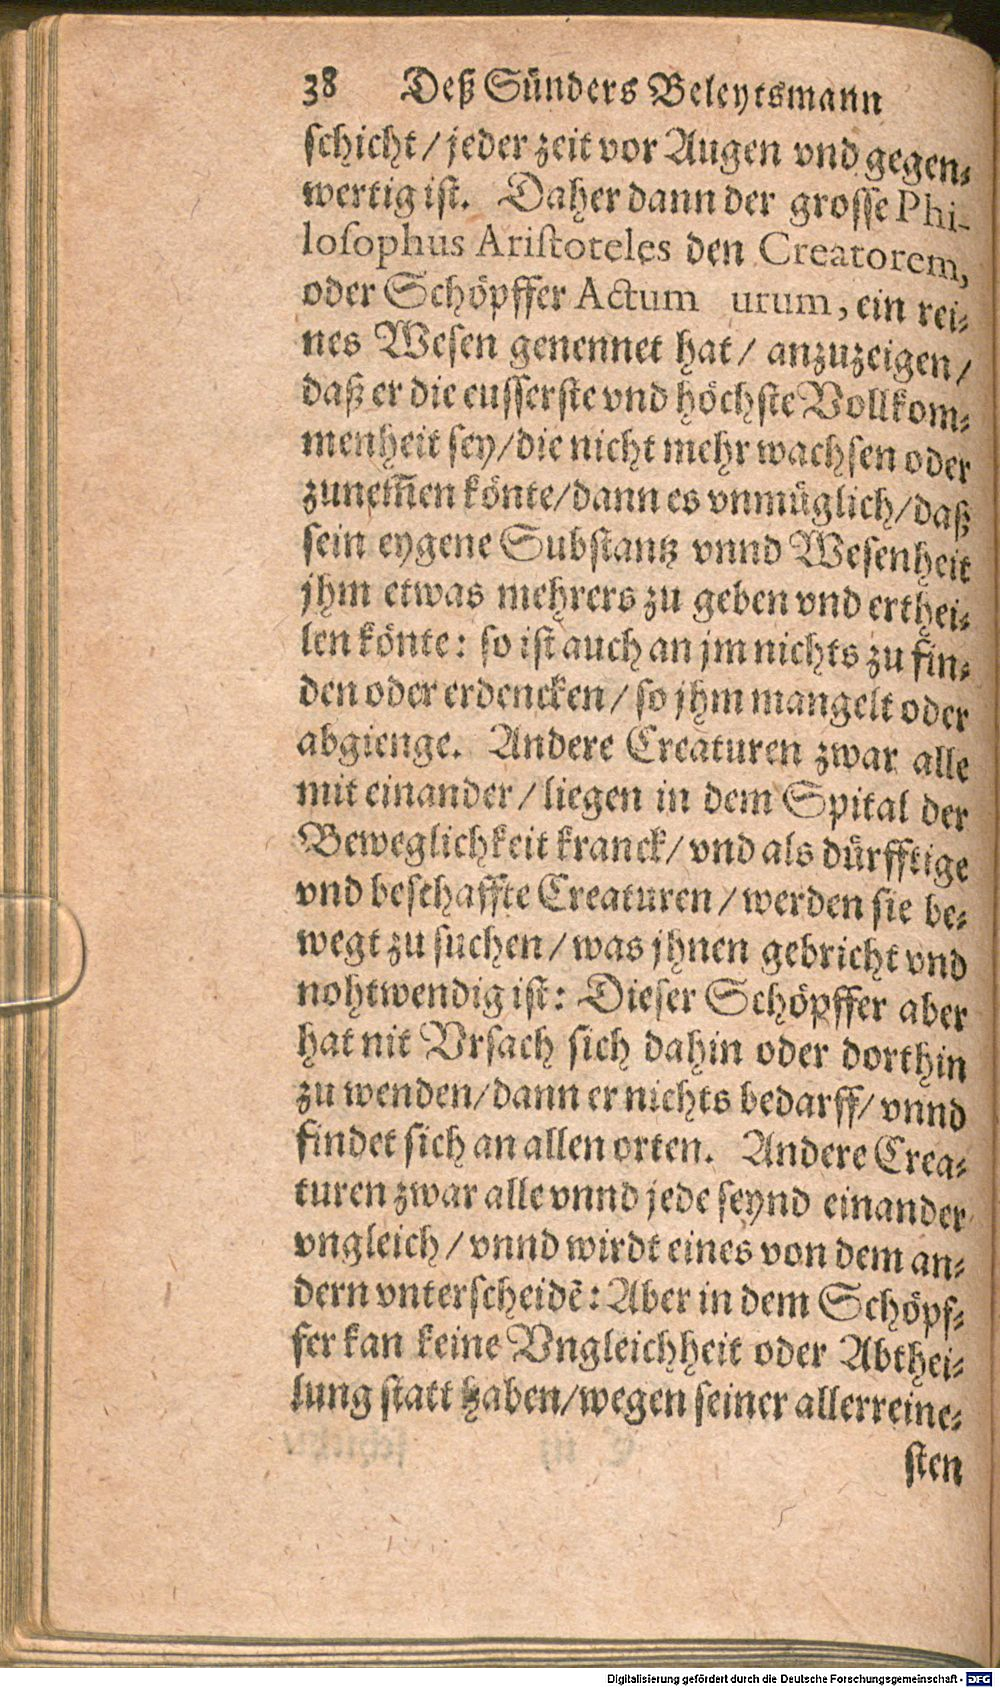 38 Deß Sünders Beleytsmann
schicht / jeder zeit vor Augen vnd gegen⸗
wertig ist. Daher dann der grosse Phi-
losophus Aristoteles den Creatorem,
oder Schöpffer Actum urum, ein rei⸗
nes Wesen genennet hat / anzuzeigen /
daß er die eusserste vnd höchste Vollkom⸗
menheit sey / die nicht mehr wachsen oder
zunem̃en könte / dann es vnmüglich / daß
sein eygene Substantz vnnd Wesenheit
jhm etwas mehrers zu geben vnd erthei⸗
len könte: so ist auch an jm nichts zu fin⸗
den oder erdencken / so jhm mangelt oder
abgienge. Andere Creaturen zwar alle
mit einander / liegen in dem Spital der
Beweglichkeit kranck / vnd als dürfftige
vnd beschaffte Creaturen / werden sie be⸗
wegt zu suchen / was jhnen gebricht vnd
nohtwendig ist: Dieser Schöpffer aber
hat nit Vrsach sich dahin oder dorthin
zu wenden / dann er nichts bedarff / vnnd
findet sich an allen orten. Andere Crea⸗
turen zwar alle vnnd jede seynd einander
vngleich / vnnd wirdt eines von dem an⸗
dern vnterscheidẽ: Aber in dem Schöpf⸗
fer kan keine Vngleichheit oder Abthei⸗
lung statt haben / wegen seiner allerreine⸗
sten
Digitalisierung gefördert durch die Deutsche Forschungsgemeinschaft - DFG